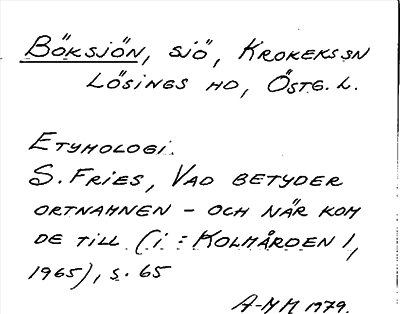 Böksjön, sjö, Krokeks sn
Lösings hd, Östg. L.
Etymologi.
S. Fries, Vad betyder
ortnamnen – och när kom
de till. (i: Kolmården 1,
1965), s. 65
A-MM 1979.